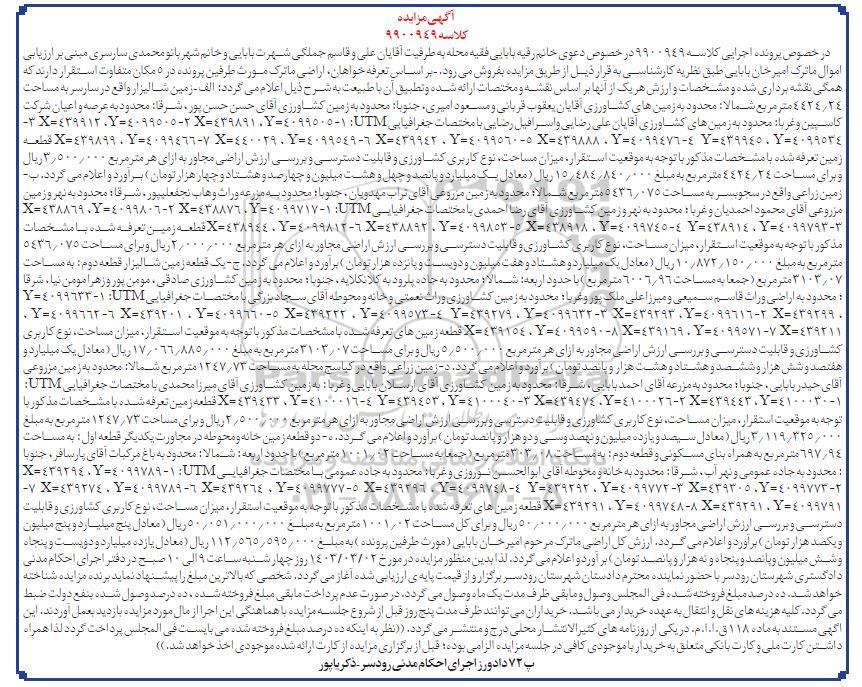 آگهی مزایده
کلاسه ۹۹۰۰۹۴۹
در خصوص پرونده اجرایی کلاسه ۹۹۰۰۹۴۹ در خصوص دعوی خانم رقیه بابایی فقیه محله به طرفیت آقایان علی و قاسم جملگی شهرت بابایی و خانم شهربانو محمدی سارسری مبنی بر ارزیابی
اموال ماترک امیرخان بابایی طبق نظریه کارشناسی به قرار ذیل از طریق مزایده بفروش می رود. -بر اساس تعرفه خواهان، اراضی ماترک مورث طرفین پرونده در ۵ مکان متفاوت استقرار دارند که
همگی نقشه برداری شده و مشخصات و ارزش هر یک از آنها بر اساس نقشه و مختصات ارائه شده و تطبیق آن با طبیعت به شرح ذیل اعلام می گردد: الف- زمین شالیزار واقع در سارسر به مساحت
۴۴۲۴/۲۴ متر مربع شمالا: محدود به زمین های کشاورزی آقایان یعقوب قربانی و مسعود امیری، جنوبا: محدود به زمین کشاورزی آقای حسن حسن پور، شرقا: محدود به عرصه و اعیان شرکت
کاسپین و غربا: محدود به زمین های کشاورزی آقایان علی رضایی و اسرافیل رضایی با مختصات جغرافیایی UTM: ۱-۴۰۹۹۵۰۵=Y، ۴۳۹۸۹۱=X ۲-۴۰۹۹۵۰۵=Y، ۴۳۹۹۱۲=X ۳-
۴۰۹۹۵۳۴=Y، ۴۳۹۹۴۵=X ۴-۴۰۹۹۴۷۶=Y، ۴۳۹۸۸۸=X ۵-۴۰۹۹۵۶۰=Y، ۴۳۹۹۴۲=X ۶-۴۰۹۹۵۴۹=Y، ۴۴۰۰۲۹=X ۷-۴۰۹۹۴۶۶=Y، ۴۳۹۸۹۹=X قطعه
زمین تعرفه شده با مشخصات مذکور با توجه به موقعیت استقرار، میزان مساحت، نوع کاربری کشاورزی و قابلیت دسترسی و بررسی ارزش اراضی مجاور به ازای هر متر مربع ۳/۵۰۰/۰۰۰ ریال
و برای مساحت ۴۴۲۴/۲۴ متر مربع به مبلغ ۱۵/۴۸۴/۸۴۰/۰۰۰ ریال (معادل یک میلیارد و پانصد و چهل و هشت میلیون و چهارصد و هشتاد و چهار هزار تومان) برآورد و اعلام می گردد. ب-
زمین زراعی واقع در سجوبسر به مساحت ۵۴۳۶/۰۷۵ متر مربع شمالا؛ محدود به زمین مزروعی آقای تراب مهدویان، جنوبا؛ محدود به مزرعه وراث وهاب نجفعلیپور، شرقا؛ محدود به نهر و زمین
مزروعی آقای محمود احمدیان و غربا؛ محدود به نهر و زمین کشاورزی آقای رضا احمدی با مختصات جغرافیایی UTM: ۱-۴۰۹۹۷۱۷=Y، ۴۳۸۸۷۶=X ۲-۴۰۹۹۸۰۶=Y، ۴۳۸۸۶۹=X
۳-۴۰۹۹۷۹۳=Y، ۴۳۸۹۱۴=X ۴-۴۰۹۹۷۴۵=Y، ۴۳۸۹۱۸=X ۵-۴۰۹۹۸۵۳=Y، ۴۳۸۸۹۳=X ۶-۴۰۹۹۸۱۲=Y، ۴۳۸۹۴۴=X قطعه زمین تعرفه شده با مشخصات
مذکور با توجه به موقعیت استقرار، میزان مساحت، نوع کاربری کشاورزی و قابلیت دسترسی و بررسی ارزش اراضی مجاور به ازای هر متر مربع ۲/۰۰۰/۰۰۰ ریال و برای مساحت ۵۴۳۶/۰۷۵
متر مربع به مبلغ ۱۰/۸۷۲/۱۵۰/۰۰۰ ریال (معادل یک میلیارد و هشتاد و هفت میلیون و دویست و پانزده هزار تومان) برآورد و اعلام می گردد. ج- یک قطعه زمین شالیزار قطعه دوم: به مساحت
۳۱۰۳/۰۷ متر مربع (جمعا به مساحت ۶۰۰۶/۹۶ متر مربع) با حدود اربعه: شمالا؛ محدود به جاده پلرود به کلانکلایه، جنوبا؛ محدود به زمین کشاورزی صادقی، مومن پور و زهرا مومن نیا، شرقا
؛ محدود به اراضی وراث قاسم سمیعی و میرزا علی ملک پور و غربا؛ محدود به زمین کشاورزی وراث نعمتی و خانه و محوطه آقای سجاد بزرگی با مختصات جغرافیایی UTM: ۱-۴۰۹۹۶۳۳=Y
، ۴۳۹۲۹۹=X ۲-۴۰۹۹۶۱۶=Y، ۴۳۹۲۹۳=X ۳-۴۰۹۹۶۳۲=Y، ۴۳۹۲۷۹=X ۴-۴۰۹۹۵۷۳=Y، ۴۳۹۲۲۲=X ۵-۴۰۹۹۶۶۰=Y، ۴۳۹۲۰۱=X ۶-۴۰۹۹۶۶۲=Y،
۴۳۹۲۱۱=X ۷-۴۰۹۹۵۷۱=Y، ۴۳۹۱۶۹=X ۸-۴۰۹۹۵۹۰=Y، ۴۳۹۱۵۴=X قطعه زمین های تعرفه شده با مشخصات مذکور با توجه به موقعیت استقرار، میزان مساحت، نوع کاربری
کشاورزی و قابلیت دسترسی و بررسی ارزش اراضی مجاور به ازای هر متر مربع ۵/۵۰۰/۰۰۰ ریال و برای مساحت ۳۱۰۳/۰۷ متر مربع به مبلغ ۱۷/۰۶۶/۸۸۵/۰۰۰ ریال (معادل یک میلیارد و
هفتصد و شش هزار و ششصد و هشتاد و هشت هزار و پانصد تومان) برآورد و اعلام می گردد. د- زمین زراعی واقع در کیاسج محله به مساحت ۱۲۴۷/۷۳ متر مربع شمالا: محدود به زمین مزروعی
آقای حیدر بابایی، جنوبا؛ محدود به مزرعه آقای احمد بابایی، شرقا: محدود به زمین کشاورزی آقای ارسلان بابایی و غربا: به زمین کشاورزی آقای میرزا محمدی با مختصات جغرافیایی UTM:
۱-۴۱۰۰۰۳۰=Y، ۴۳۹۴۴۳=X ۲-۴۱۰۰۰۲۶=Y، ۴۳۹۴۷۴=X ۳-۴۱۰۰۰۴۰=Y، ۴۳۹۴۵۳=X ۴-۴۱۰۰۰۱۶=Y، ۴۳۹۴۳۳=X قطعه زمین تعرفه شده با مشخصات مذکور با
توجه به موقعیت استقرار، میزان مساحت، نوع کاربری کشاورزی و قابلیت دسترسی و بررسی ارزش اراضی مجاور به ازای هر متر مربع ۲/۵۰۰/۰۰۰ ریال و برای مساحت ۱۲۴۷/۷۳ متر مربع به مبلغ
۳/۱۱۹/۳۲۵/۰۰۰ ریال (معادل سیصد و یازده میلیون و نهصد و سی و دو هزار و پانصد تومان) برآورد و اعلام می گردد. ه- دو قطعه زمین خانه و محوطه در مجاورت یکدیگر قطعه اول: به مساحت
۶۹۷/۹۴ متر مربع به همراه بنای مسکونی و قطعه دوم: به مساحت ۳۰۳/۰۸ متر مربع (جمعا به مساحت ۱۰۰۱/۰۲ متر مربع) با حدود اربعه: شمالا: محدود به باغ مرکبات آقای پارسافر، جنوبا
: محدود به جاده عمومی و نهر آب، شرقا: محدود به خانه و محوطه آقای ابوالحسن نوروزی و غربا: محدود به جاده عمومی با مختصات جغرافیایی UTM: ۱-۴۰۹۹۷۸۹=Y، ۴۳۹۲۹۴=X
۲-۴۰۹۹۷۷۳=Y، ۴۳۹۳۰۵=X ۳-۴۰۹۹۷۷۲=Y، ۴۳۹۲۹۲=X ۴-۴۰۹۹۷۴۸=Y، ۴۳۹۲۹۶=X ۵-۴۰۹۹۷۷۷=Y، ۴۳۹۲۶۴=X ۶-۴۰۹۹۷۸۹=Y، ۴۳۹۲۷۴=X ۷-
۴۰۹۹۷۹۱=Y، ۴۳۹۲۹۱=X ۸-۴۰۹۹۷۴۸=Y، ۴۳۹۲۹۱=X قطعه زمین های تعرفه شده با مشخصات مذکور با توجه به موقعیت استقرار، میزان مساحت، نوع کاربری کشاورزی و قابلیت
دسترسی و بررسی ارزش اراضی مجاور به ازای هر متر مربع ۵۰/۰۰۰/۰۰۰ ریال و برای کل مساحت ۱۰۰۱/۰۲ متر مربع به مبلغ ۵۰/۰۵۱/۰۰۰/۰۰۰ ریال (معادل پنج میلیارد و پنج میلیون
و یکصد هزار تومان) برآورد و اعلام می گردد. ارزش کل اراضی ماترک مرحوم امیرخان بابایی (مورث طرفین پرونده) به مبلغ ۱۱۲/۵۶۵/۵۹۵/۰۰۰ ریال (معادل یازده میلیارد و دویست و پنجاه
و شش میلیون و پانصد و پنجاه و نه هزار و پانصد تومان) برآورد و اعلام می گردد. لذا بدین منظور مزایده در مورخ ۱۴۰۳/۰۳/۰۲ روز چهارشنبه ساعت ۹ الی ۱۰ صبح در دفتر اجرای احکام مدنی
دادگستری شهرستان رودسر با حضور نماینده محترم دادستان شهرستان رودسر برگزار و از قیمت پایه ی ارزیابی شده آغاز می گردد. شخصی که بالاترین مبلغ را پیشنهاد نماید برنده مزایده شناخته
خواهد شد. ده درصد مبلغ فروخته شده فی المجلس وصول و مابقی ظرف مدت یک ماه وصول می گردد. در صورت عدم پرداخت مابقی مبلغ فروخته شده، ده درصد وصول شده بنفع دولت ضبط
می گردد. کلیه هزینه های نقل و انتقال به عهده خریدار می باشد. خریداران می توانند ظرف مدت پنج روز قبل از شروع جلسه مزایده با هماهنگی این اجرا از مال مورد مزایده بازدید بعمل آوردند. این
اگهی مستند به ماده ۱۱۸ ق.ا.ا.م. در یکی از روزنامه های کثیرالانتشار محلی درج و منتشر می گردد. ((نظر به اینکه ده درصد مبلغ فروخته شده می بایست فی المجلس پرداخت گردد لذا همراه
داشتن کارت ملی و کارت بانکی متعلق به خریدار با موجودی کافی در جلسه مزایده الزامی بوده؛ قبل از برگزاری مزایده از کارت ارائه شده موجودی اخذ خواهد شد.))
پ ۷۲ دادورز اجرای احکام مدنی رودسر- ذکریاپور